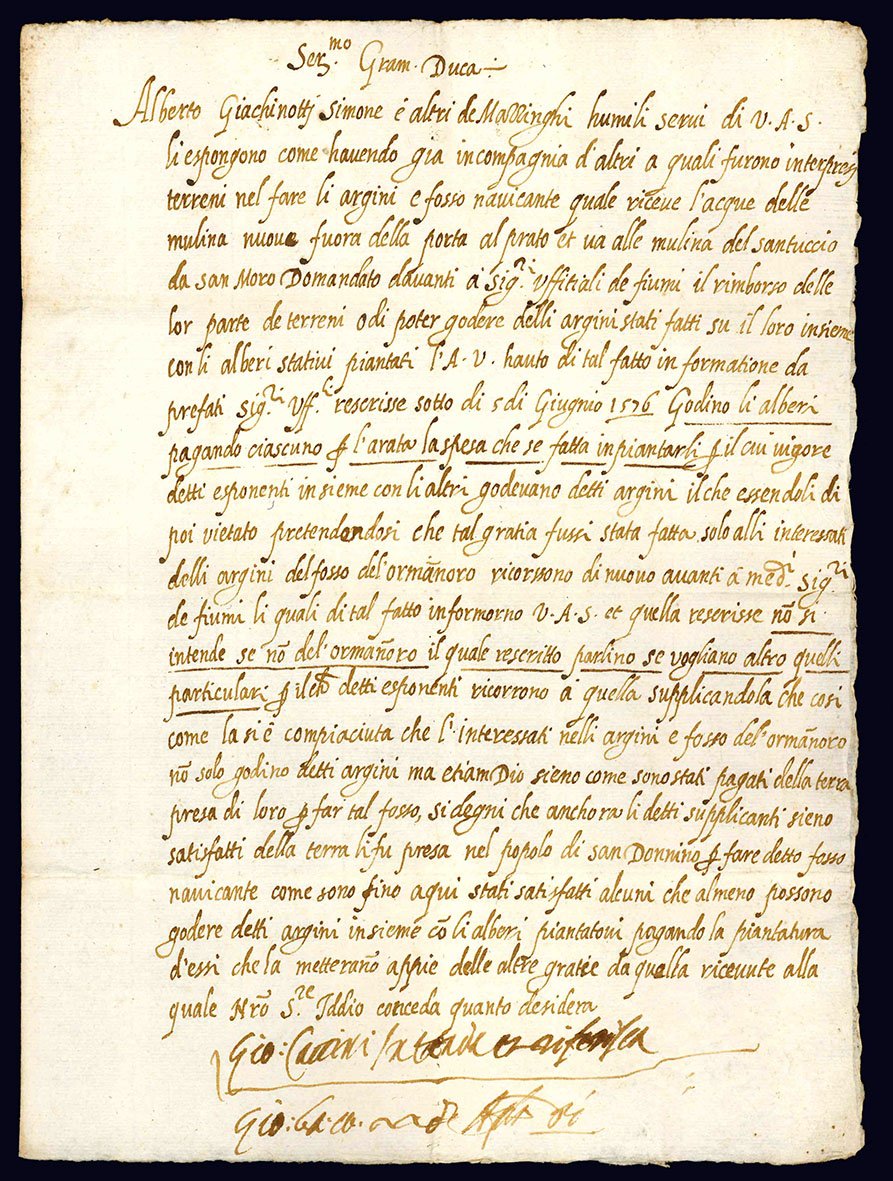 Ser.mo Gram. Duca
Alberto Giachinottj Simone é altri de Mazzinghi humili servi di V.A.S.
li espongono come havendo gia incompagnia d'altri a quali furono interpresj
terreni nel fare li argini e fosso navicante quale riceve l'acque delle
mulina nuove fuora della porta al prato et va alle mulina del santuccio
da san Moro Domandato davanti á Sig.ri Uffitiali de fiumi il rimborso delle
lor parte de terreni o di poter godere delli argini stati fatti su il loro insieme
con li alberi stativi piantati l'A.V. hauto di tal fatto informatione da
prefati Sig.ri Uff.li rescrisse sotto di 5 di Giugnio 1576 Godino li alberi
pagando ciascuno ꝑ l'arata la spesa che se fatta in piantarli ꝑ il cui vigore
detti esponenti insieme con li altri godevano detti argini il che essendoli di
poi vietato pretendendosi che tal gratia fussi stata fatta solo alli interessati
delli argini del fosso del'ormañoro ricorsono di nuovo avanti á med.i Sig.ri
de fiumi li quali di tal fatto informorno V.A.S. et quella rescrisse nõ si
intende se nõ del'ormañoro il quale rescritto parlino se vogliano altro quelli
particulari ꝑ il ch̃ detti esponenti ricorrono á quella supplicandola che cosi
come la si é compiaciuta che l'interessati nelli argini e fosso del'ormañoro
nõ solo godino detti argini ma etiam Dio sieno come sono stati pagati della terra
presa di loro ꝑ far tal fosso, si degni che anchora li detti supplicanti sieno
satisfatti della terra li fu presa nel popolo di san Donnino ꝑ fare detto fosso
navicante come sono fino aqui stati satisfatti alcuni che almeno possono
godere detti argini insieme cõ li alberi piantatovi pagando la piantatura
d'essi che la metterañо appie delle altre gratie da quella ricevute alla
quale Nrõ S.re Iddio conceda quanto desidera
Gio: Caccini et riferisca
Gio: